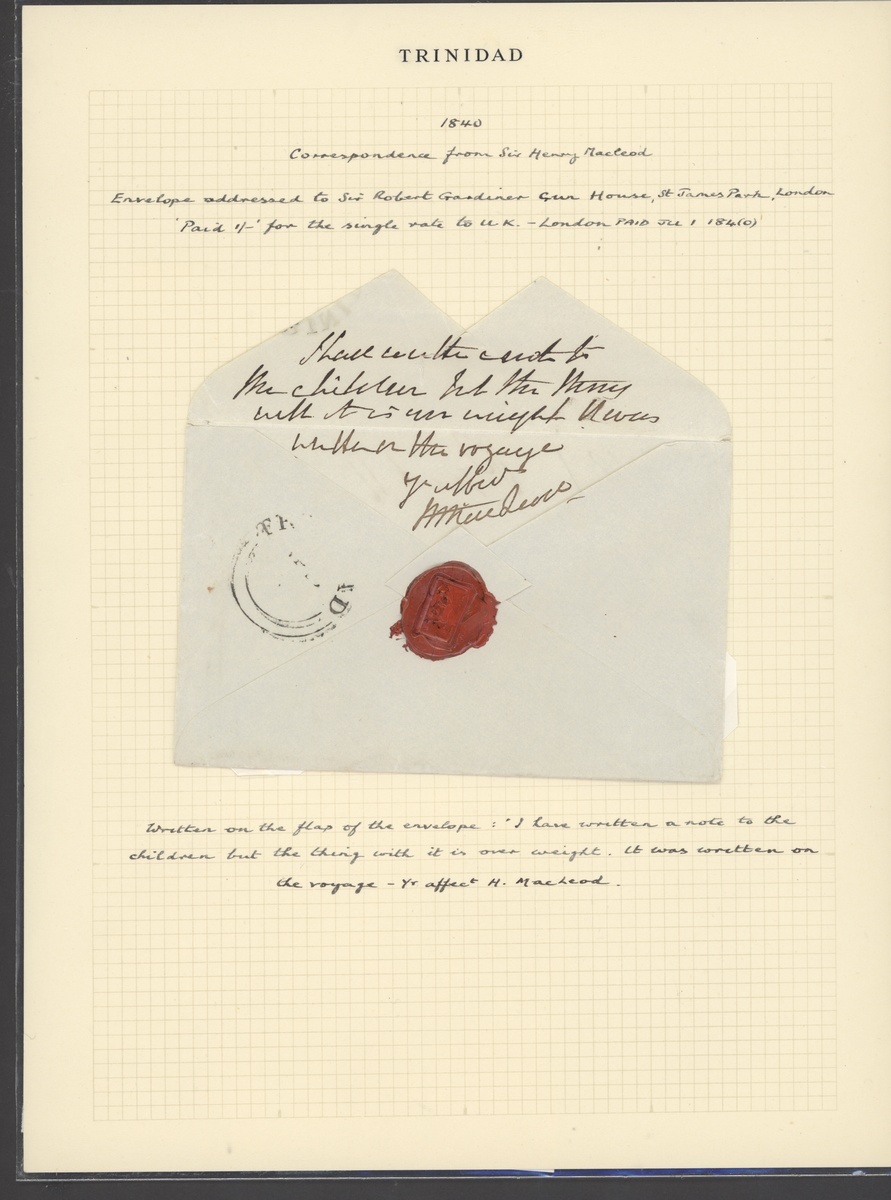 TRINIDAD
1840
Correspondence from Sir Henry Macleod
Envelope addressed to Sir Robert Gardiner Gun House, St James Park, London
'Paid 1/-' for the single rate to U.K. - London PAID JU 1 184(0)
I have written a note to
the children but the thing
with it is over weight It was
written on the voyage
Yr affect
H MacLeod
Written on the flap of the envelope : 'I have written a note to the
children but the thing with it is over weight. It was written on
the voyage - Yr affect H. MacLeod.